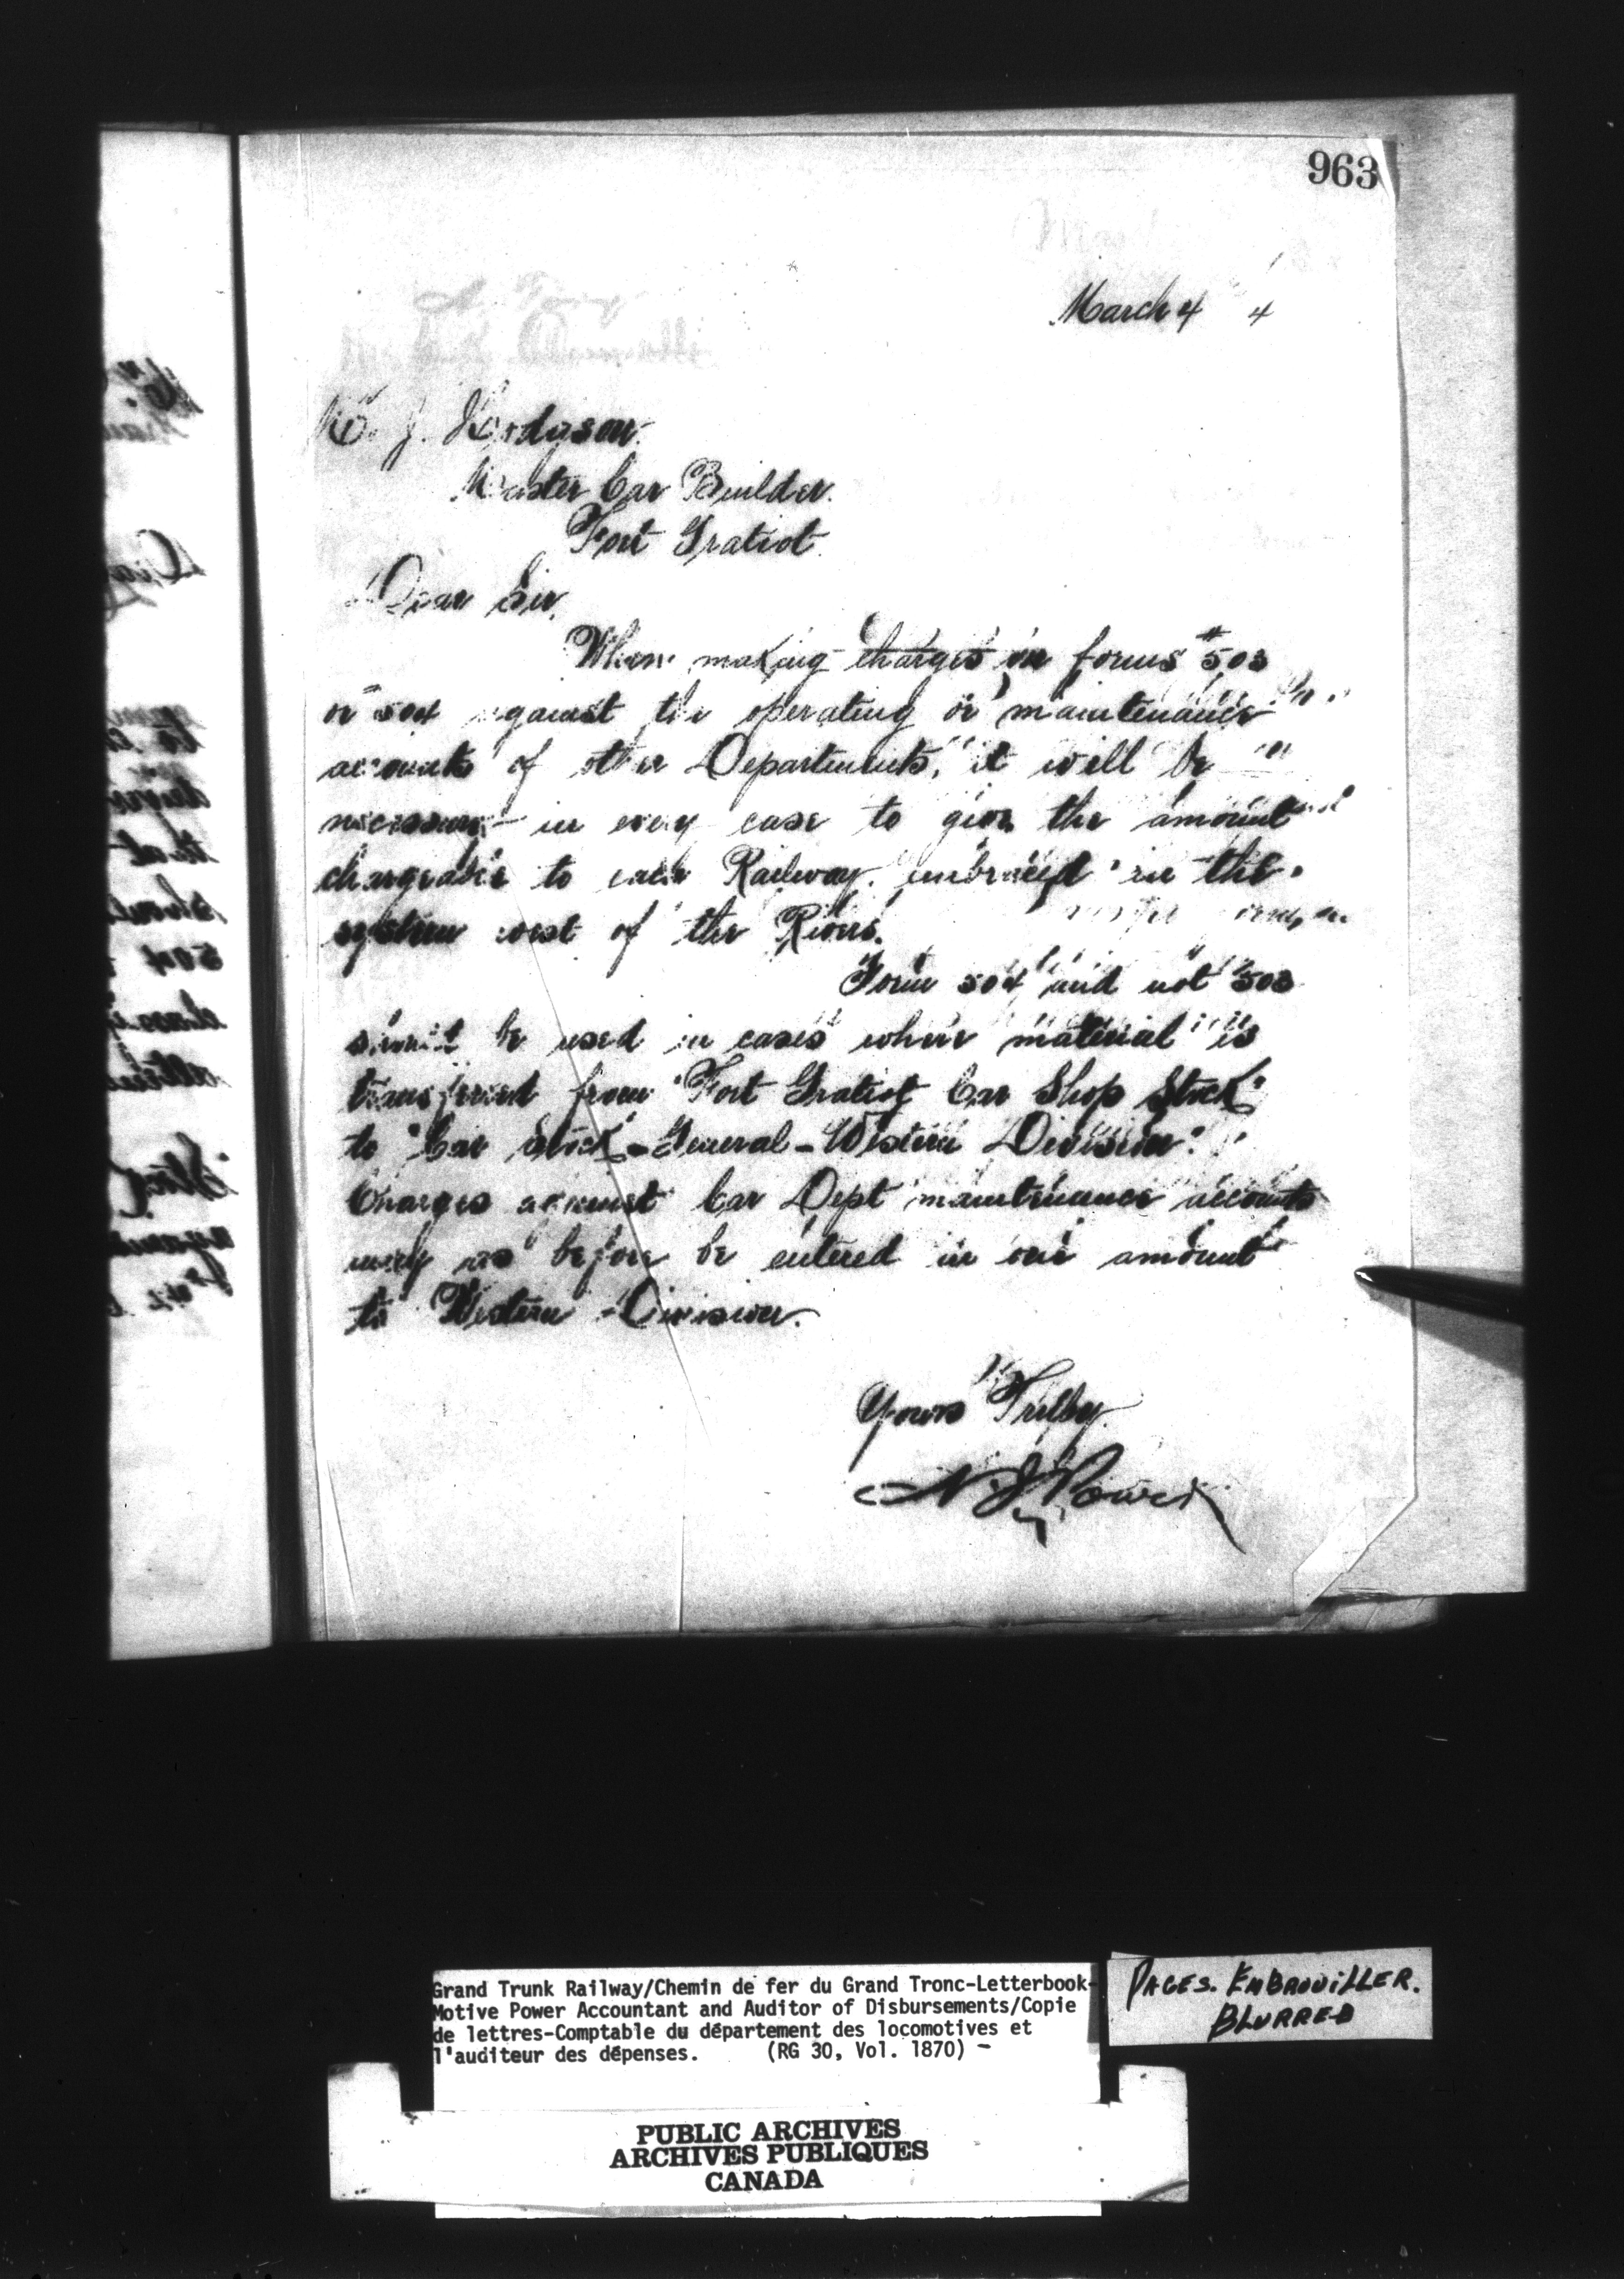 963
March 4 4
J. Hodgson
Master Car Builder.
Fort Gratiot.
Dear Sir,
When making charges on forms # 503
or 504 against the operating or maintenance
accounts of other Departments, it will be
necessary in every case to give the amount
chargeable to each Railway embraced in the
system west of the Rivers.
Form 504 and not 503
should be used in cases where material is
transferred from "Fort Gratiot Car Shop Stock"
to "Car Stock - General - Western Division".
Charges against Car Dept maintenance accounts
may as before be entered in one amount
to Western Division.
Yours Truly
Power
Grand Trunk Railway/Chemin de fer du Grand Tronc-Letterbook-
Motive Power Accountant and Auditor of Disbursements/Copie
de lettres-Comptable du département des locomotives et
l'auditeur des dépenses. (RG 30, Vol. 1870) -
PAGES. EMBROUILLER.
BLURRED
PUBLIC ARCHIVES
ARCHIVES PUBLIQUES
CANADA